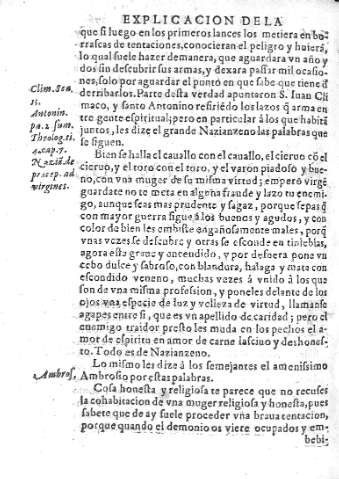 EXPLICACION DE LA
que si luego en los primeros lances los metiera en bo-
rrascas de tentaciones, conocieran el peligro y huierã,
lo qual suele hazer demanera, que aguardara vn año y
dos sin descubrir sus armas, y dexara passar mil ocasio-
nes, solo por aguardar el punto en que sabe que tiene d̃
derribarlos. Parte desta verdad apuntaron S. Iuan Cli
maco, y santo Antonino refiriẽdo los lazos q̃ arma en
tre gente espiritual; pero en particular à los que habitã
juntos, les dize el grande Nazianzeno las palabras que
se siguen.
Clim. Sca.
Antonin.
pa. 2. sum.
Theolog. ti.
4. cap. 7.
Naziã. de
præcep. ad
virgines.
Bien se halla el cauallo con el cauallo, el cieruo cõ el
cieruo, y el toro con el toro, y el varon piadoso y bue-
no, con vna muger de su misma virtud; empero virgẽ
guardate no te meta en algũna fraude y lazo tu enemi-
go, aunque seas mas prudente y sagaz, porque sepas q̃
con mayor guerra sigue à los buenos y agudos, y con
color de bien les embiste engañosamente males, porq̃
vnas vezes se descubre y otras se esconde en tinieblas,
agora esta graue y encendido, y por defuera pone vn
cebo dulce y sabroso, con blandura, halaga y mata con
escondido veneno, muchas vezes à vnido à los que
son de vna misma profession, y poneles delante de los
ojos vna especie de luz y velleza de virtud, llamanse
agapes entre si, que es vn apellido de caridad; pero el
enemigo traidor presto les muda en los pechos el a-
mor de espiritu en amor de carne lasciuo y deshones-
to. Todo es de Nazianzeno.
Lo mismo les dize à los semejantes el amenissimo
Ambrosio por estas palabras.
Ambros.
Cosa honesta y religiosa te parece que no recuses
la cohabitacion de vna muger religiosa y honesta, pues
sabete que de ay suele proceder vna braua tentacion,
porque quando el demonio os viere ocupados y em-
bebi-